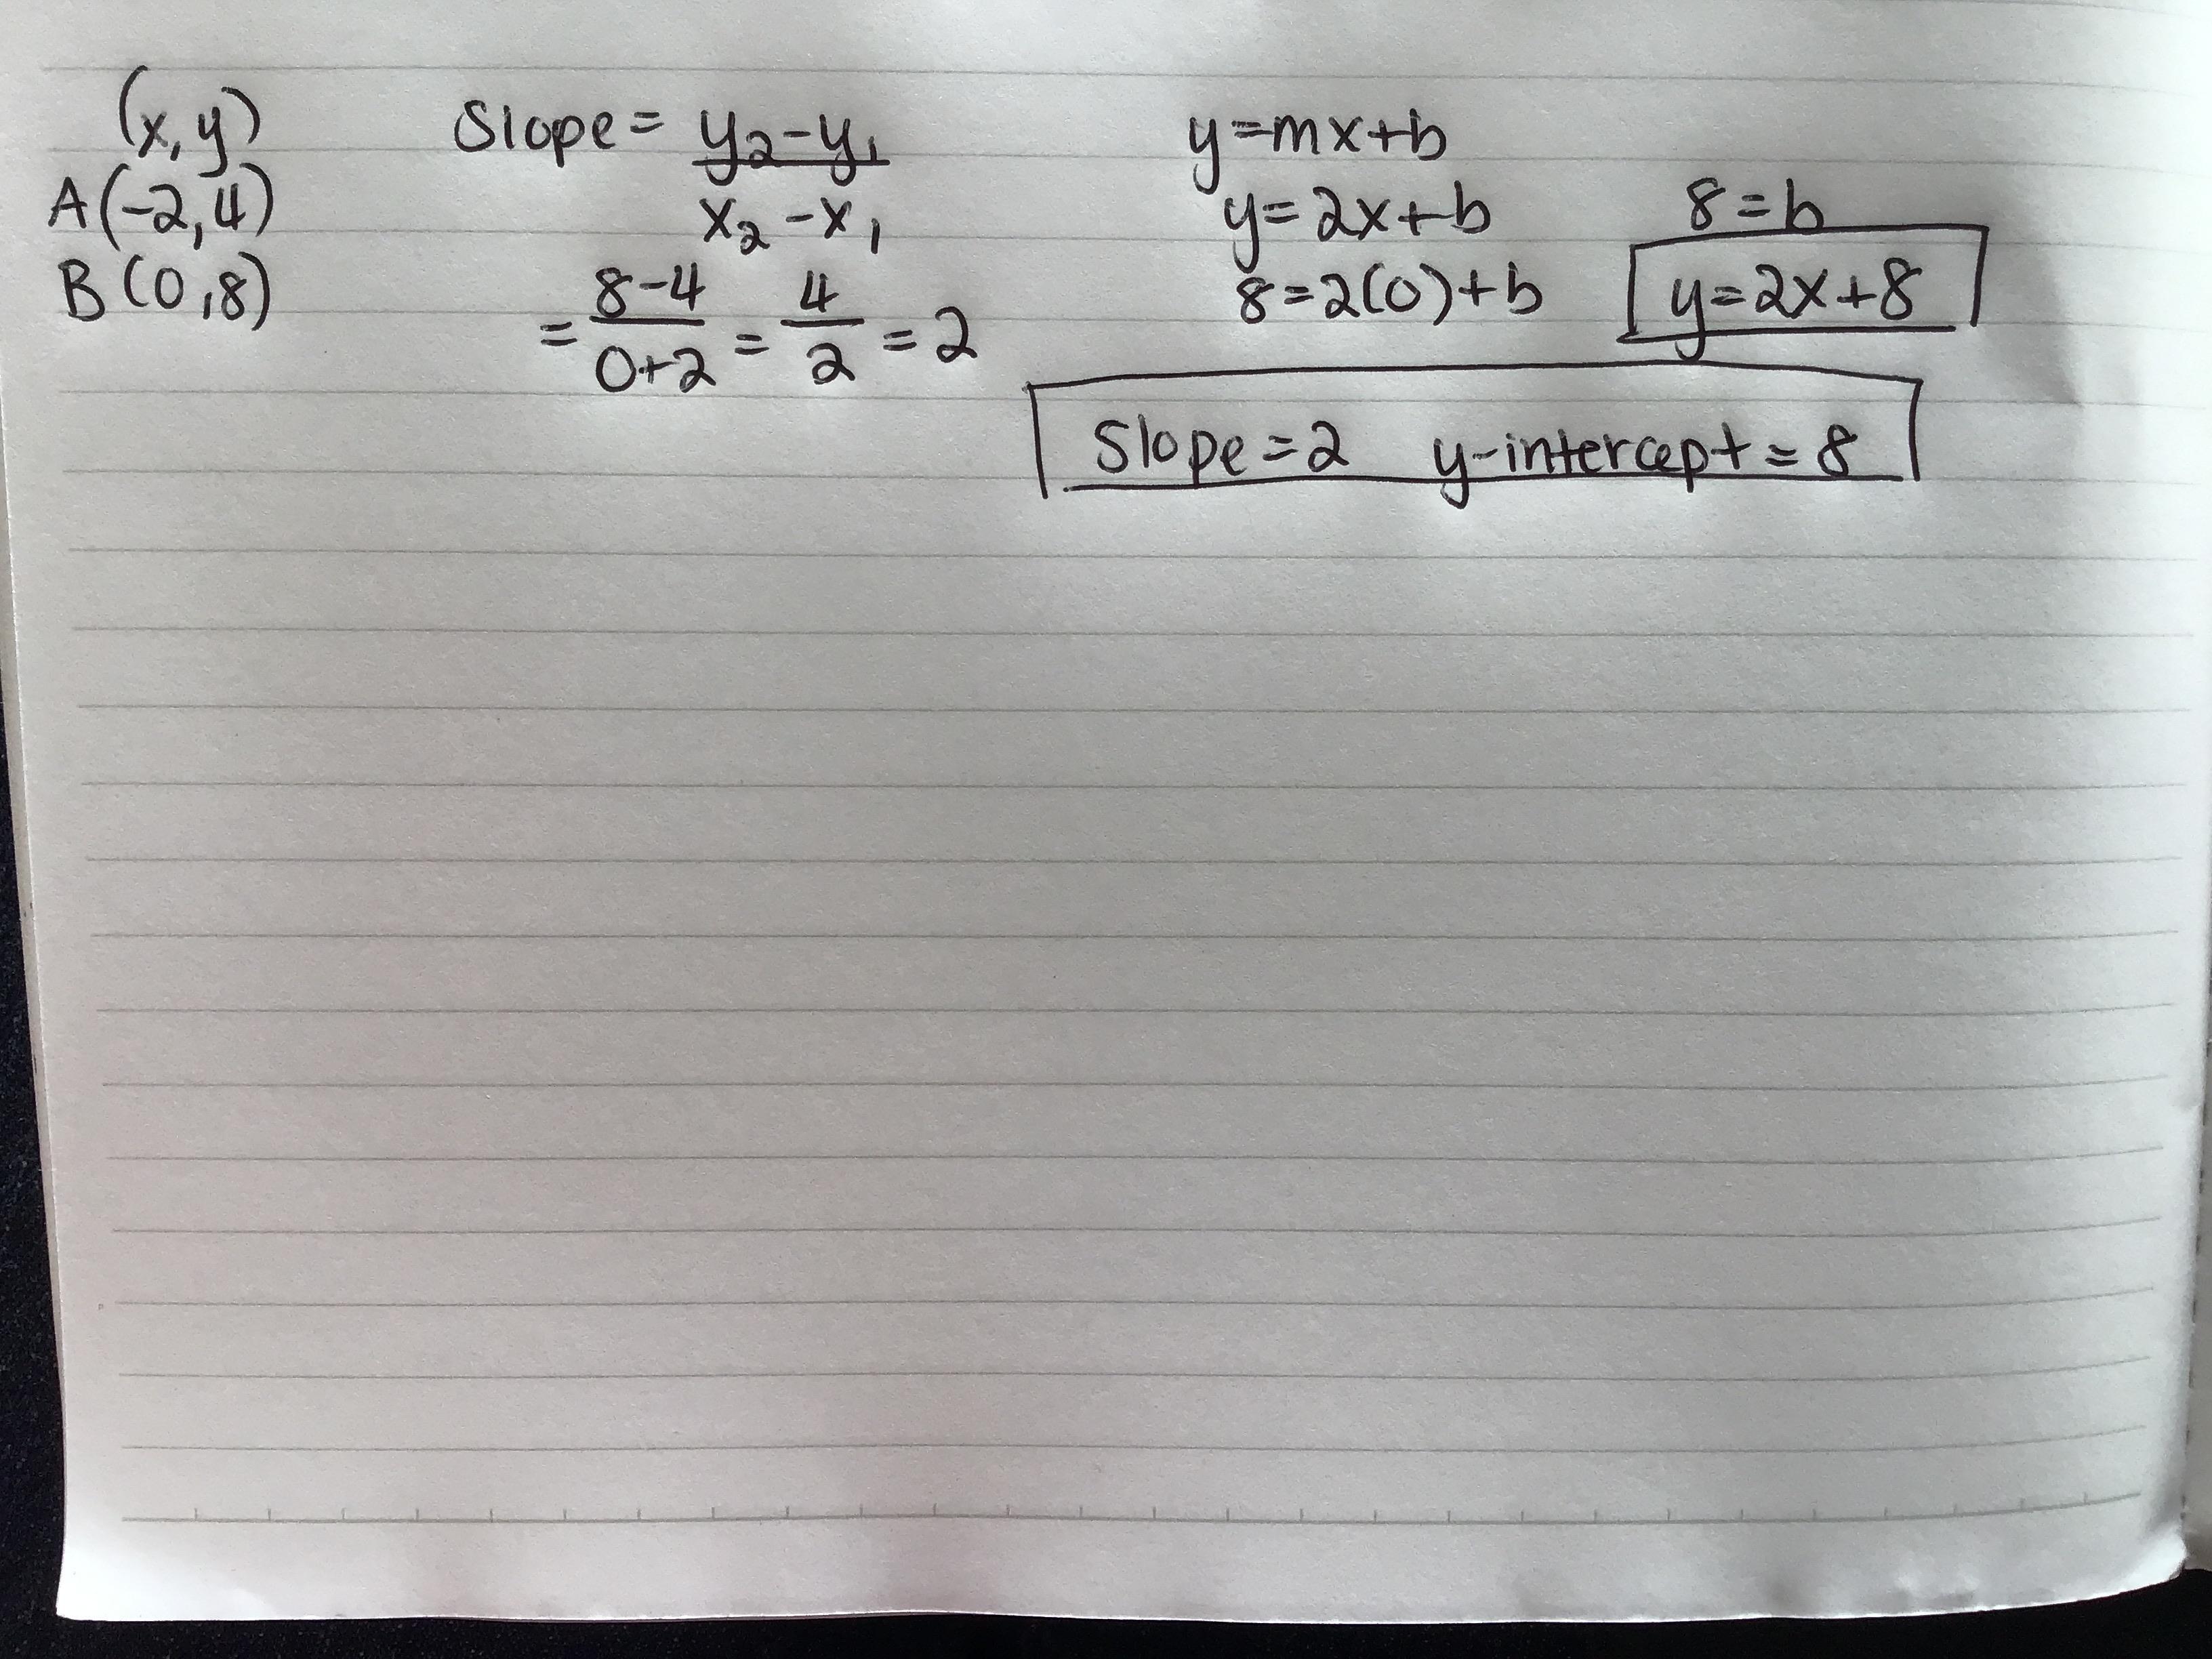 (x, y)
A(-2, 4)
B(0, 8)
Slope = y₂-y₁
x₂-x₁
= 8-4 = 4 = 2
0+2 2
y=mx+b
y=2x+b
8=2(0)+b
8=b
y=2x+8
Slope=2 y-intercept=8